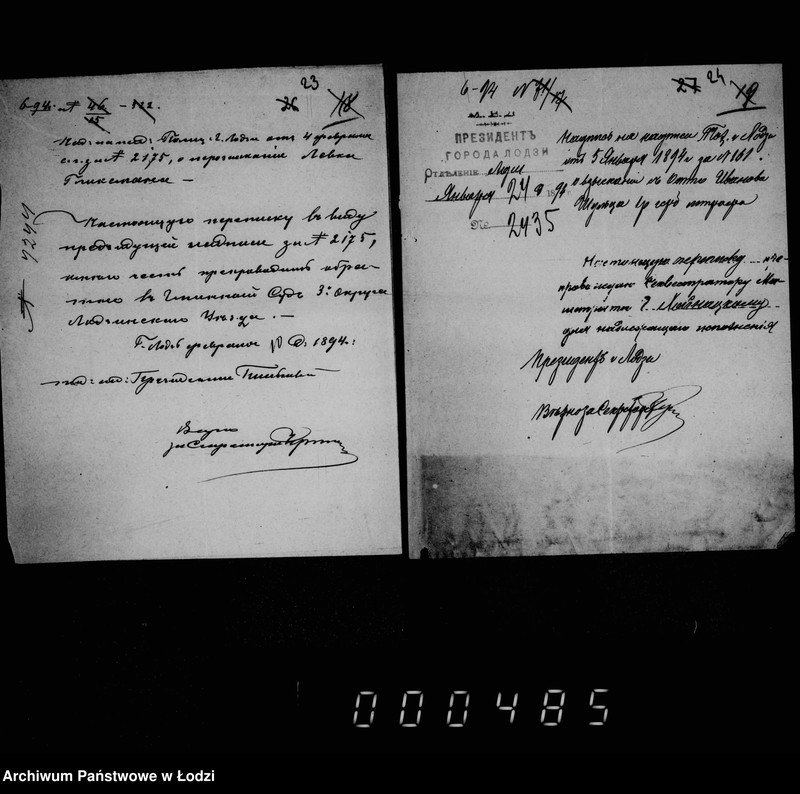 23
6-94. № 46 - 112.
45
26 18
Над. на пед. Полиц. г. Лодзи отъ 4 февраля
с.г. за № 2175, о переписканіи Левка
Гликсмана —
№ 4244
Настоящую переписку въ виду
предыдущей надписи за № 2175,
имѣю честь препроводить обрат-
но въ Гминный Судъ 3го округа
Лодзинскаго Уѣзда. —
Г. Лодзь февраля 10 д. 1894 г.
Вѣрно
за Секретаря
6-94 № 31/17
27 24 19
М. В. Д.
ПРЕЗИДЕНТЪ
ГОРОДА ЛОДЗИ
Отдѣленіе Адм
Января 24 д 1894
№ 2435
Надпись на надписи Пол. г. Лодзи
отъ 5 Января 1894 г за № 161
о взысканіи съ Отто Иванова
Шульца 1 р 50 к штрафа
Настоящую переписку пре-
провождаю Секвестратору Ма-
гистрата Г.
для надлежащаго исполненія
Президентъ г. Лодзи
Вѣрно за Секретаря
000485
Archiwum Państwowe w Łodzi